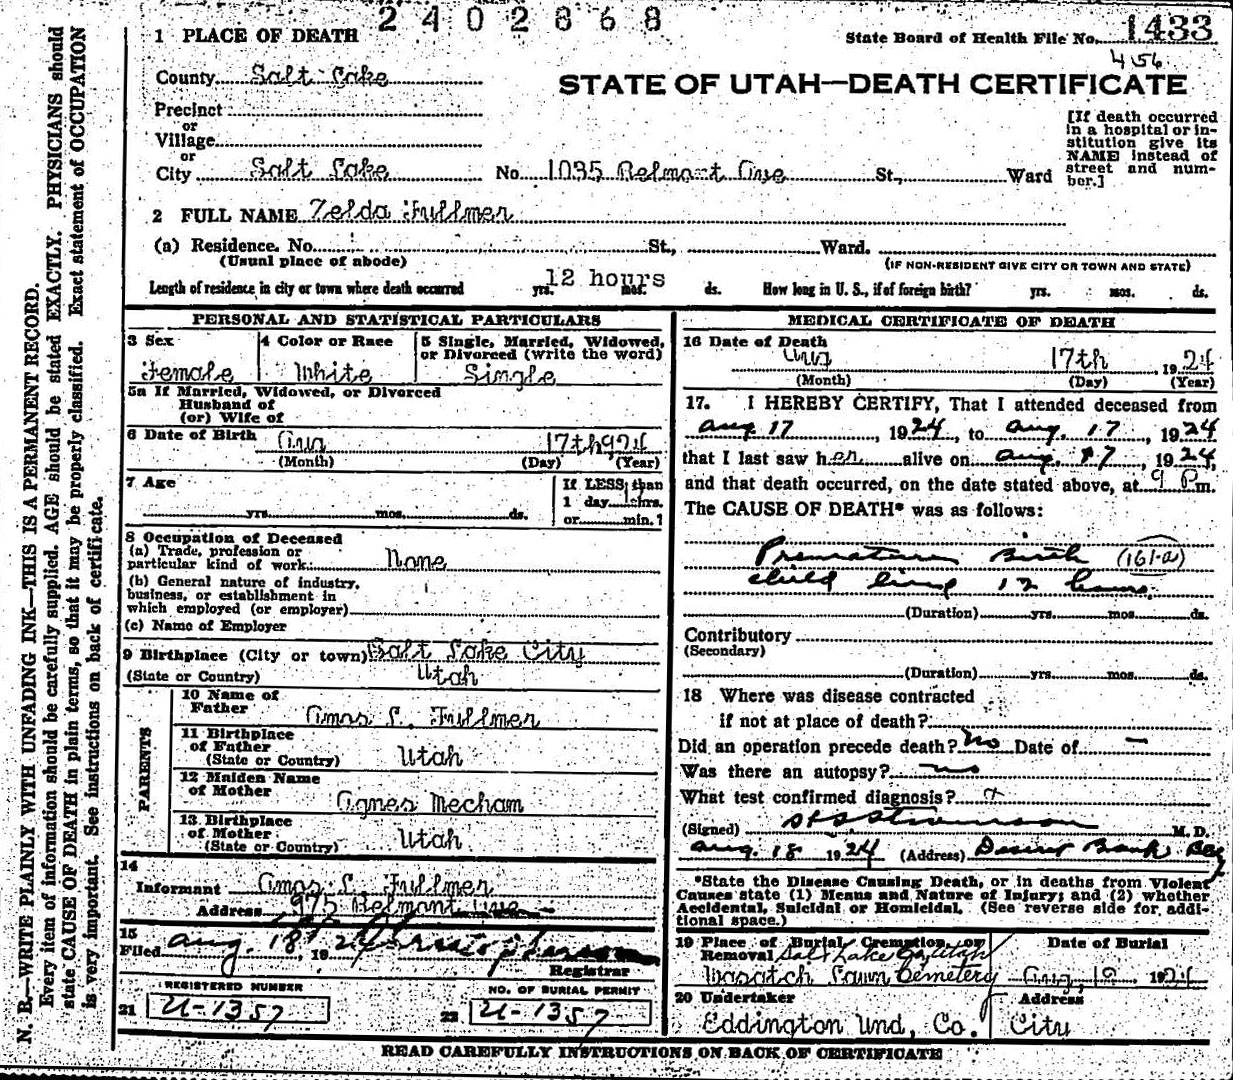 2402868
State Board of Health File No. 1433
456
1 PLACE OF DEATH
County Salt Lake
STATE OF UTAH—DEATH CERTIFICATE
Precinct
or
Village
or
City Salt Lake No. 1035 Belmont Ave St., Ward
[If death occurred
in a hospital or in-
stitution give its
NAME instead of
street and num-
ber.]
2 FULL NAME Zelda Fullmer
(a) Residence. No. St., Ward.
(Usual place of abode) (IF NON-RESIDENT GIVE CITY OR TOWN AND STATE)
Length of residence in city or town where death occurred yrs. 12 hours mos. ds. How long in U. S., if of foreign birth? yrs. mos. ds.
PERSONAL AND STATISTICAL PARTICULARS
3 Sex
Female
4 Color or Race
White
5 Single, Married, Widowed,
or Divorced (write the word)
Single
5a If Married, Widowed, or Divorced
Husband of
(or) Wife of
6 Date of Birth Aug 17th 924
(Month) (Day) (Year)
7 Age
yrs. mos. ds.
If LESS than
1 day hrs.
or min.?
8 Occupation of Deceased
(a) Trade, profession or
particular kind of work: None
(b) General nature of industry,
business, or establishment in
which employed (or employer)
(c) Name of Employer
9 Birthplace (City or town) Salt Lake City
(State or Country) Utah
PARENTS
10 Name of
Father Amos L. Fullmer
11 Birthplace
of Father
(State or Country) Utah
12 Maiden Name
of Mother Agnes Mecham
13 Birthplace
of Mother
(State or Country) Utah
14
Informant Amos L. Fullmer
Address 975 Belmont Ave
15
Filed Aug. 18 1924
Registrar
REGISTERED NUMBER
21 U-1357
NO. OF BURIAL PERMIT
22 U-1357
MEDICAL CERTIFICATE OF DEATH
16 Date of Death
Aug 17th 1924
(Month) (Day) (Year)
17. I HEREBY CERTIFY, That I attended deceased from
Aug 17, 1924, to Aug. 17, 1924
that I last saw her alive on Aug. 17, 1924,
and that death occurred, on the date stated above, at 9 Pm.
The CAUSE OF DEATH* was as follows:
Premature Birth (161-a)
child living 12 hours.
(Duration) yrs. mos. ds.
Contributory
(Secondary)
(Duration) yrs. mos. ds.
18 Where was disease contracted
if not at place of death?
Did an operation precede death? No Date of —
Was there an autopsy? no
What test confirmed diagnosis?
(Signed) M. D.
Aug. 18 1924 (Address) Deseret Bank Bldg
*State the Disease Causing Death, or in deaths from Violent
Causes state (1) Means and Nature of Injury; and (2) whether
Accidental, Suicidal or Homicidal. (See reverse side for addi-
tional space.)
19 Place of Burial, Cremation, or
Removal Salt Lake City, Utah
Wasatch Lawn Cemetery
Date of Burial
Aug, 1924
20 Undertaker
Eddington Und, Co.
Address
City
READ CAREFULLY INSTRUCTIONS ON BACK OF CERTIFICATE
N. B.—WRITE PLAINLY WITH UNFADING INK—THIS IS A PERMANENT RECORD.
Every item of information should be carefully supplied. AGE should be stated EXACTLY. PHYSICIANS should
state CAUSE OF DEATH in plain terms, so that it may be properly classified. Exact statement of OCCUPATION
is very important. See instructions on back of certificate.